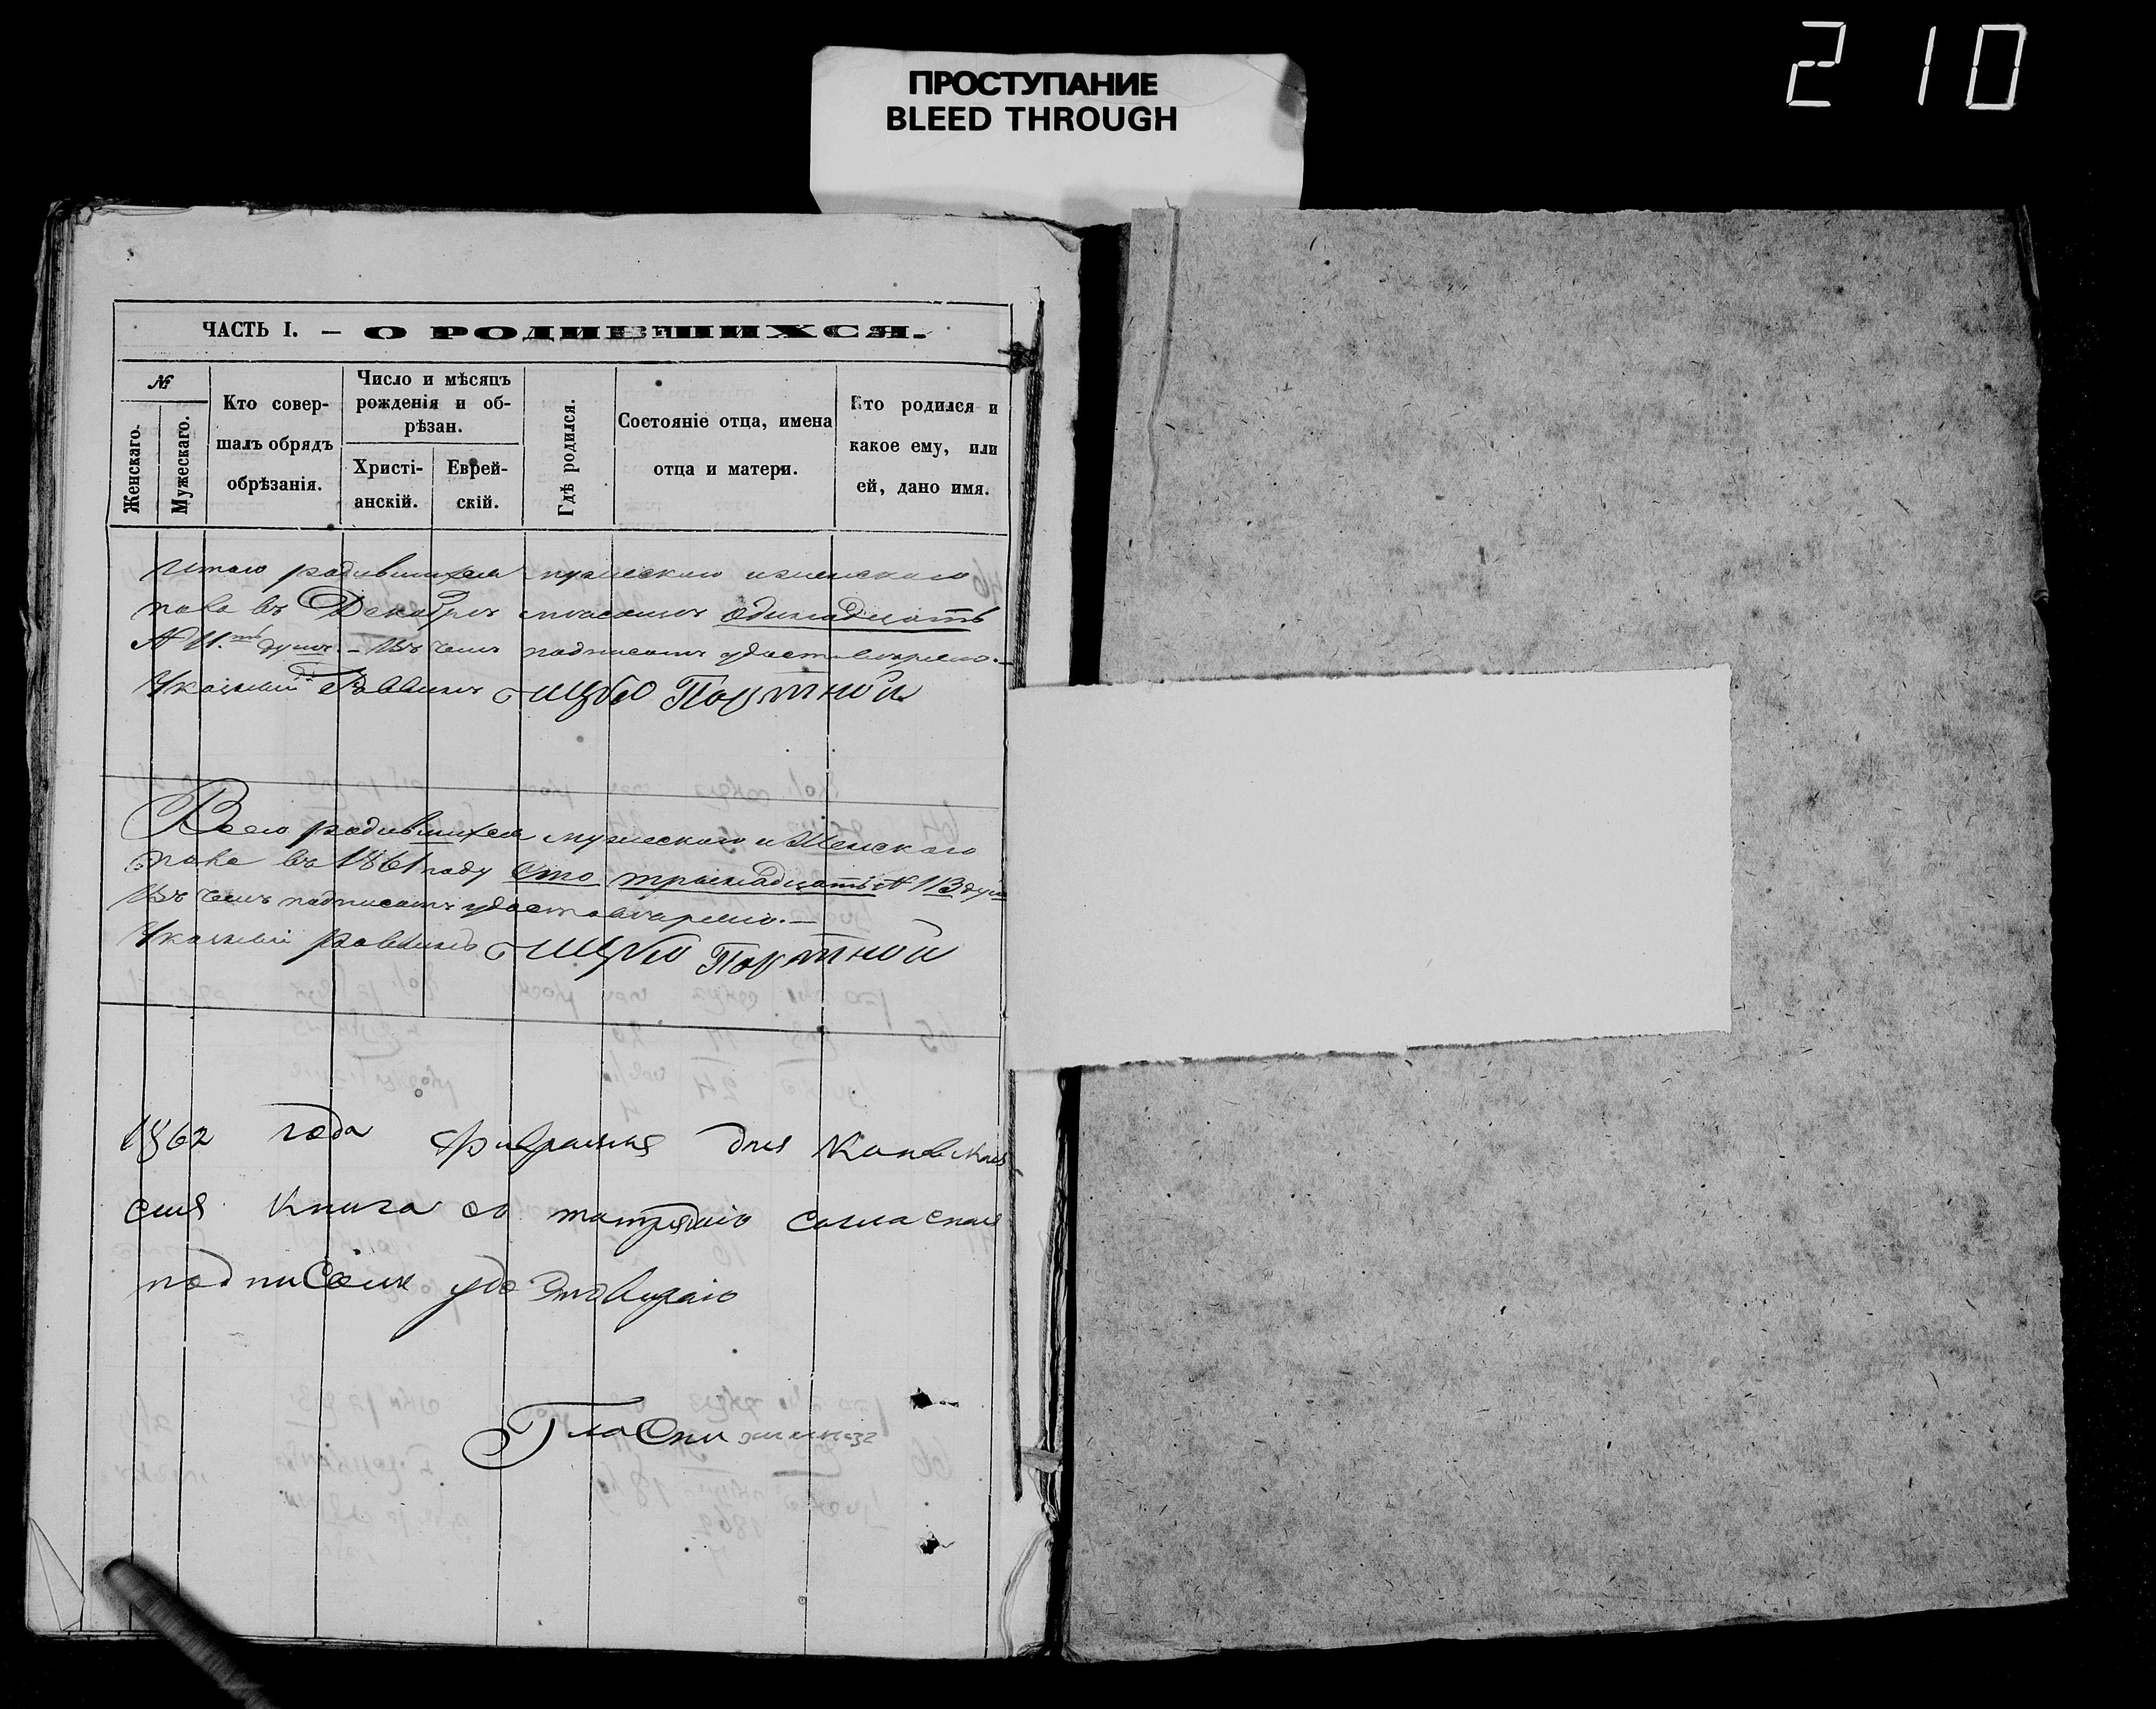 210
ПРОСТУПАНИЕ
BLEED THROUGH
ЧАСТЬ I. — О РОДИВШИХСЯ.
№
Женскаго.
Мужескаго.
Кто совер-
шалъ обрядъ
обрѣзанія.
Число и мѣсяцъ
рожденія и об-
рѣзан.
Христі-
анскій.
Еврей-
скій.
Гдѣ родился.
Состояніе отца, имена
отца и матери.
Кто родился и
какое ему, или
ей, дано имя.
Итого родившихся мужескаго и женскаго
пола въ Декабрѣ мѣсяцѣ одинадцать
№ 11. душъ — Въ чемъ подписомъ удостовѣряю. —
Раввинъ Портной
Всего родившихся мужескаго и Женскаго
пола въ 1861 году Сто тринадцать № 113 душъ
Въ чемъ подписомъ удостовѣряю. —
Раввинъ Портной
1862 года дня
сия Книга
подписомъ